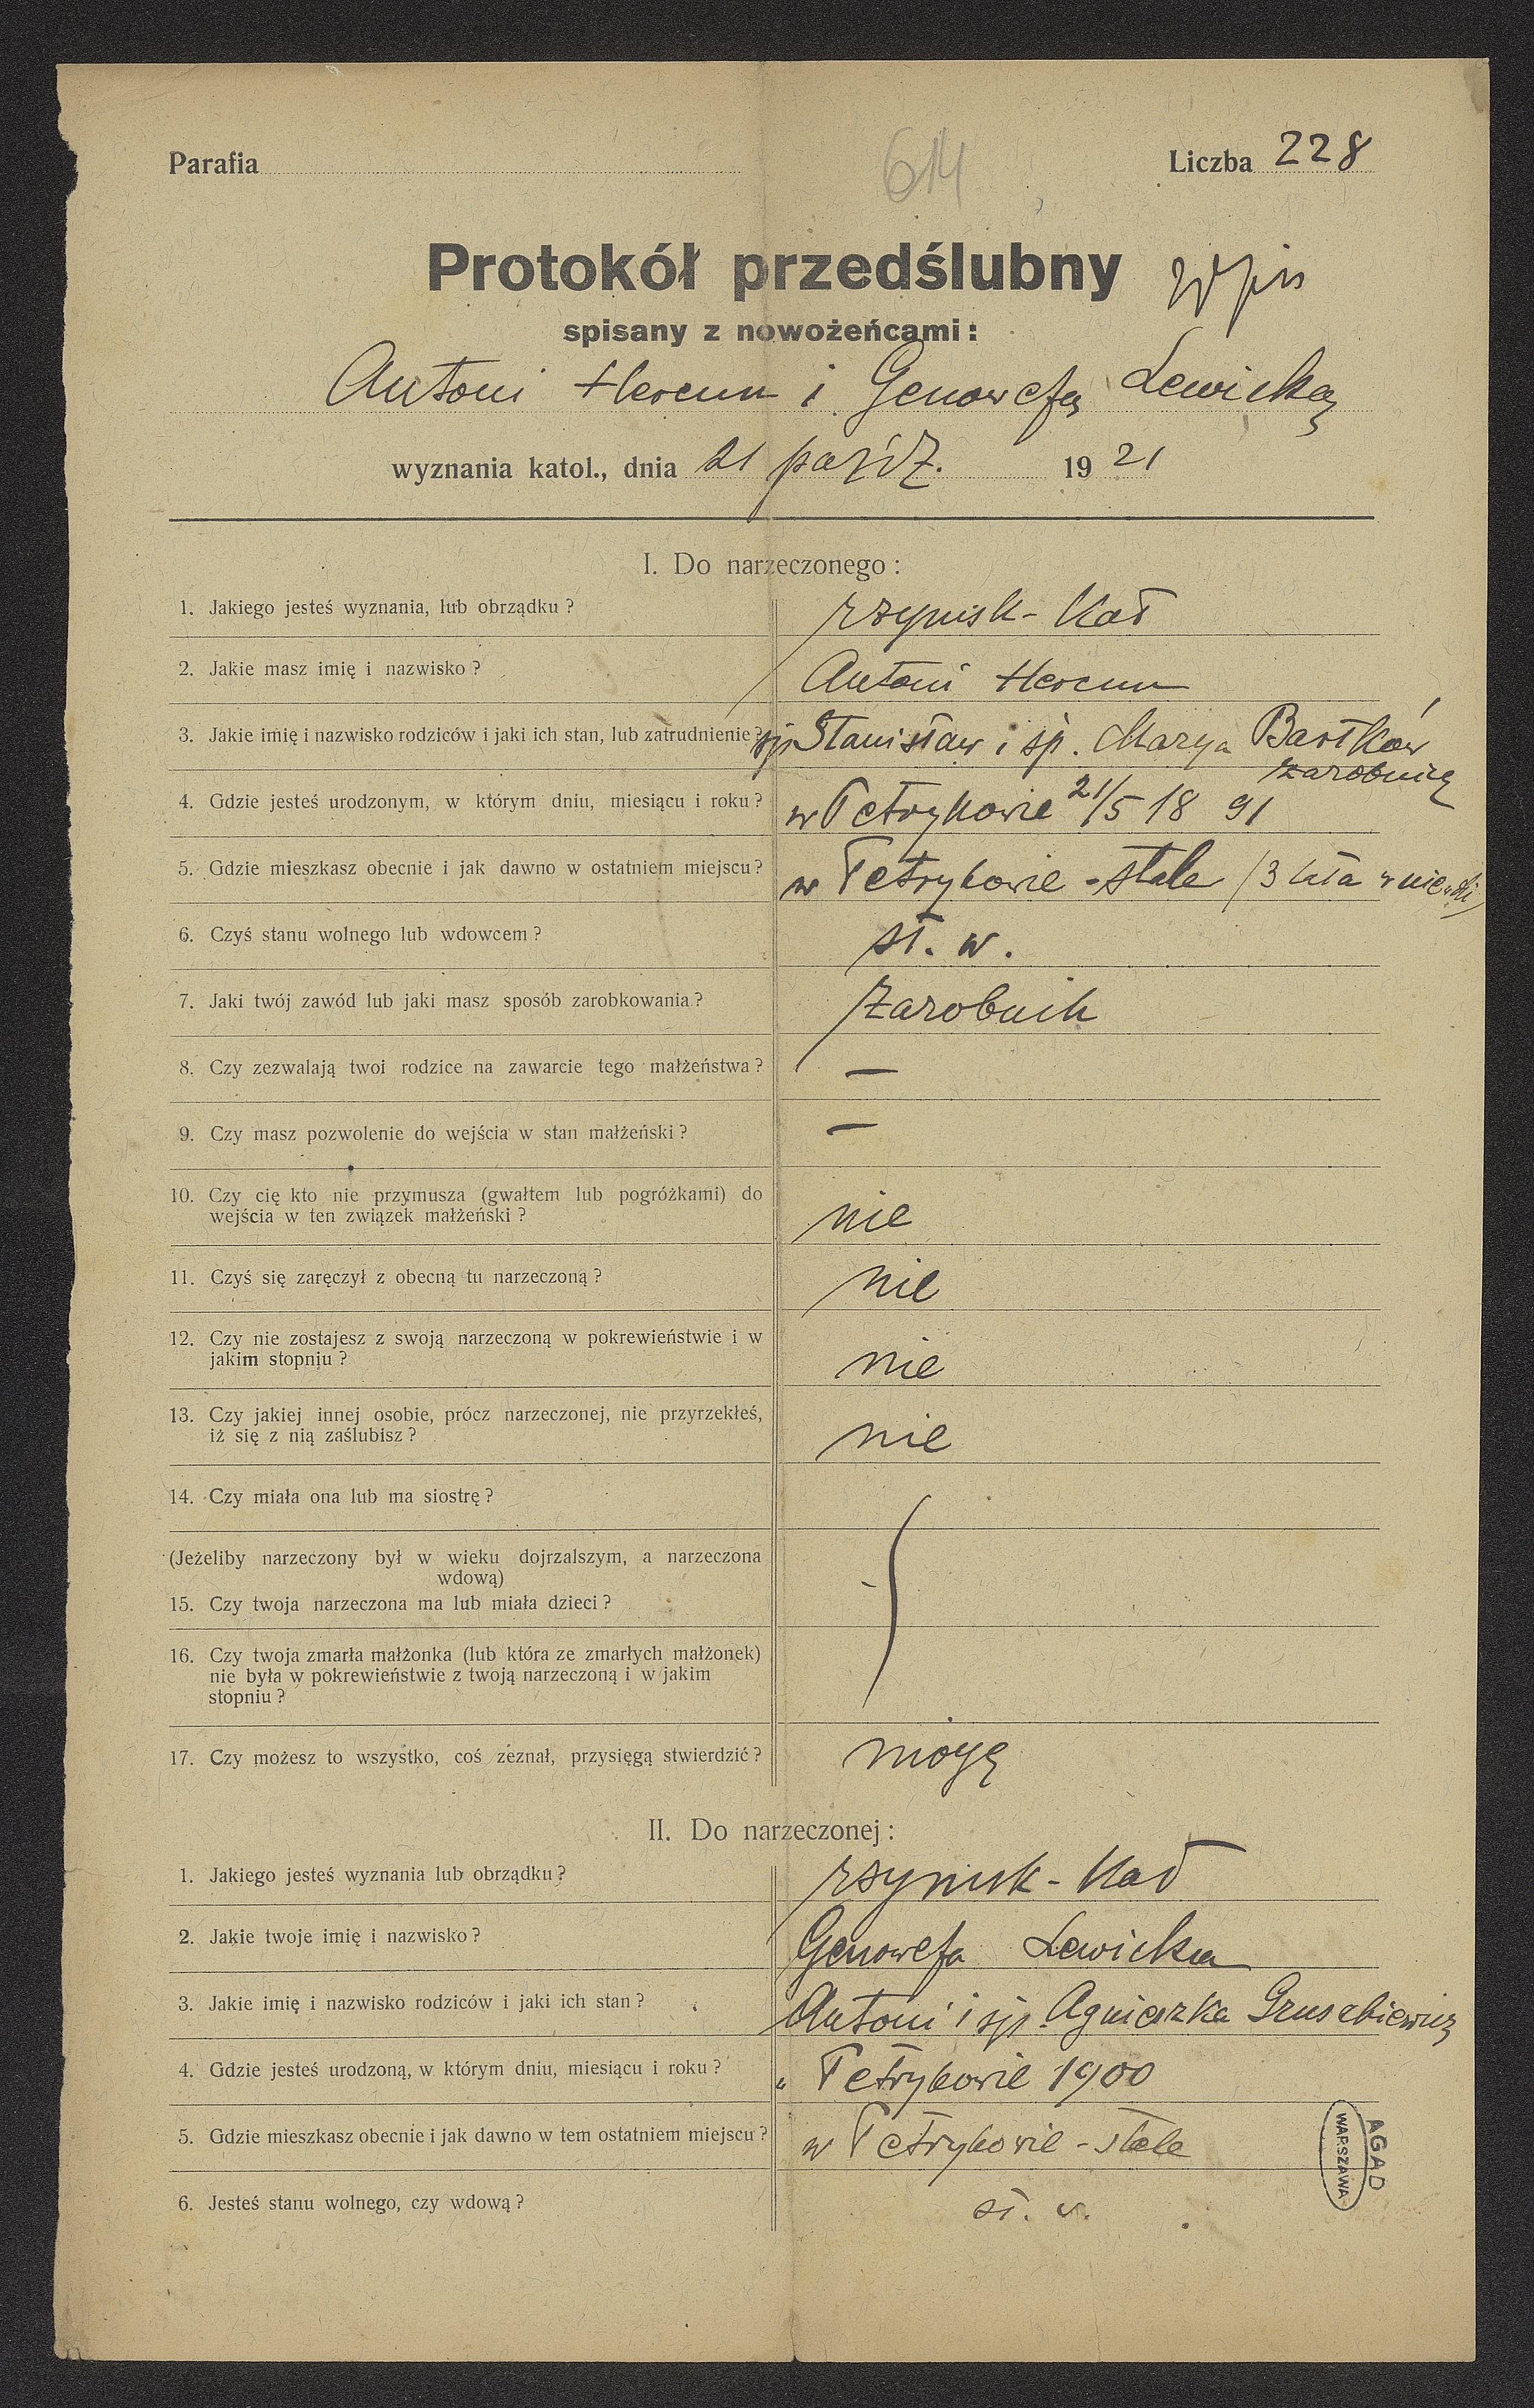 Parafia
614
Liczba 228
Protokół przedślubny
spisany z nowożeńcami:
Antoni Hercun i Genowefą Lewicką
wyznania katol., dnia 21 paźdz. 1921
I. Do narzeczonego:
1. Jakiego jesteś wyznania, lub obrządku?
rzymsk-kat
2. Jakie masz imię i nazwisko?
Antoni Hercun
3. Jakie imię i nazwisko rodziców i jaki ich stan, lub zatrudnienie?
śp Stanisław i śp. Marya Bartków
zarobnicy
4. Gdzie jesteś urodzonym, w którym dniu, miesiącu i roku?
w Petrykowie 21/5 1891
5. Gdzie mieszkasz obecnie i jak dawno w ostatniem miejscu?
w Petrykowie - stale (3 lata w
6. Czyś stanu wolnego lub wdowcem?
st. w.
7. Jaki twój zawód lub jaki masz sposób zarobkowania?
zarobnik
8. Czy zezwalają twoi rodzice na zawarcie tego małżeństwa?
—
9. Czy masz pozwolenie do wejścia w stan małżeński?
—
10. Czy cię kto nie przymusza (gwałtem lub pogróżkami) do
wejścia w ten związek małżeński?
nie
11. Czyś się zaręczył z obecną tu narzeczoną?
nie
12. Czy nie zostajesz z swoją narzeczoną w pokrewieństwie i w
jakim stopniu?
nie
13. Czy jakiej innej osobie, prócz narzeczonej, nie przyrzekłeś,
iż się z nią zaślubisz?
nie
14. Czy miała ona lub ma siostrę?
(Jeżeliby narzeczony był w wieku dojrzalszym, a narzeczona
wdową)
15. Czy twoja narzeczona ma lub miała dzieci?
16. Czy twoja zmarła małżonka (lub która ze zmarłych małżonek)
nie była w pokrewieństwie z twoją narzeczoną i w jakim
stopniu?
17. Czy możesz to wszystko, coś zeznał, przysięgą stwierdzić?
mogę
II. Do narzeczonej:
1. Jakiego jesteś wyznania lub obrządku?
rzymsk-kat
2. Jakie twoje imię i nazwisko?
Genowefa Lewicka
3. Jakie imię i nazwisko rodziców i jaki ich stan?
Antoni i śp. Agnieszka
4. Gdzie jesteś urodzoną, w którym dniu, miesiącu i roku?
w Petrykowie 1900
5. Gdzie mieszkasz obecnie i jak dawno w tem ostatniem miejscu?
w Petrykowie - stale
6. Jesteś stanu wolnego, czy wdową?
st. w.
AGAD
WARSZAWA